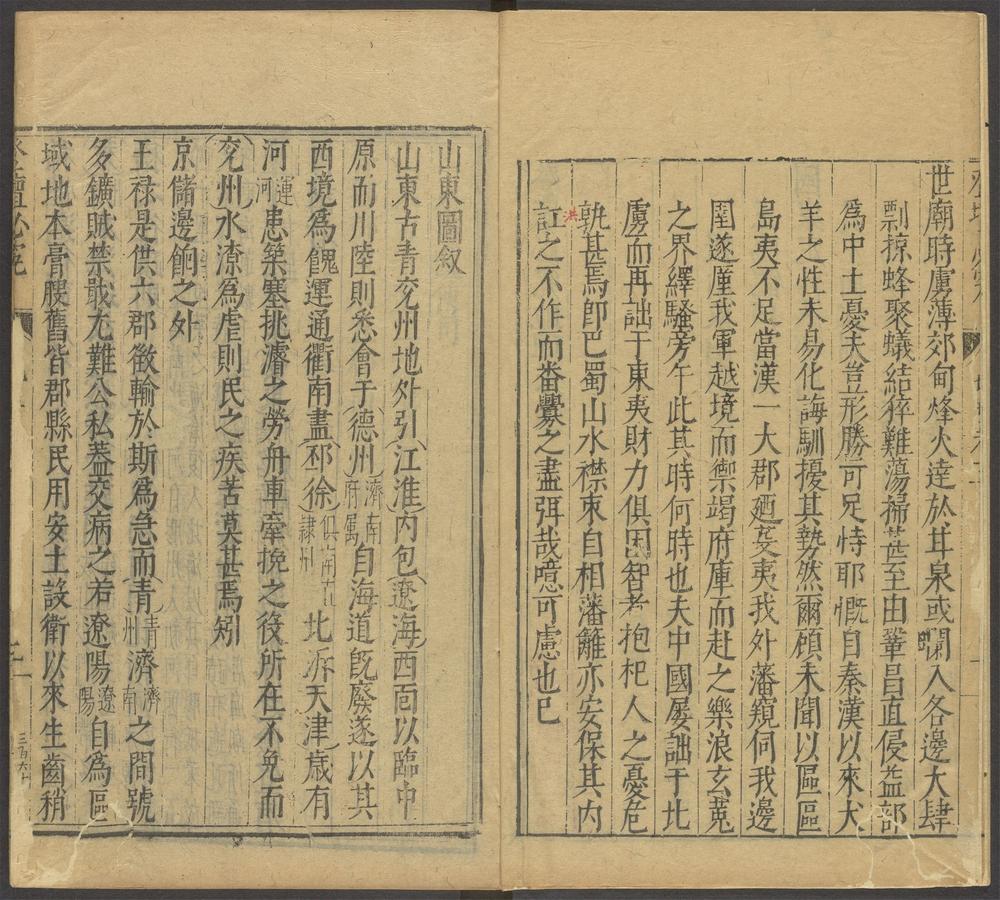 世廟時虜薄郊甸烽火達於甘泉或闌入各邊大肆
剽掠蜂聚蟻結猝難蕩掃甚至由鞏昌直侵益部
爲中土憂夫豈形勝可足恃耶慨自秦漢以來犬
羊之性未易化誨馴擾其勢然爾頋未聞以區區
島夷不足當漢一大郡廼芟夷我外藩窺伺我邊
圉遂厪我軍越境而禦竭府庫而赴之樂浪玄菟
之界繹騷旁午此其時何時也夫中國屡詘于北
虜而再詘于東夷財力俱困智者抱杞人之憂危
孰甚焉卽巴蜀山水襟束自相藩籬亦安保其内
訌之不作而畨釁之盡弭哉噫可慮也已
洪
山東圖叙
山東古青兖州地外引江淮内包遼海西面以臨中
原而川陸則悉會于德州濟南府屬自海道旣廢遂以其
西境爲餽運通衢南盡邳徐俱南直隸州北泝天津歲有
河運河患築塞挑濬之勞舟車牽挽之役所在不免而
兖州水潦爲虐則民之疾苦莫甚焉矧
京儲邊餉之外
王禄是供六郡徵輸於斯爲急而青青州濟濟南之間號
多鑛賊禁戢尤難公私蓋交病之若遼陽遼陽自爲區
域地本膏腴舊皆郡縣民用安土設衛以來生齒稍